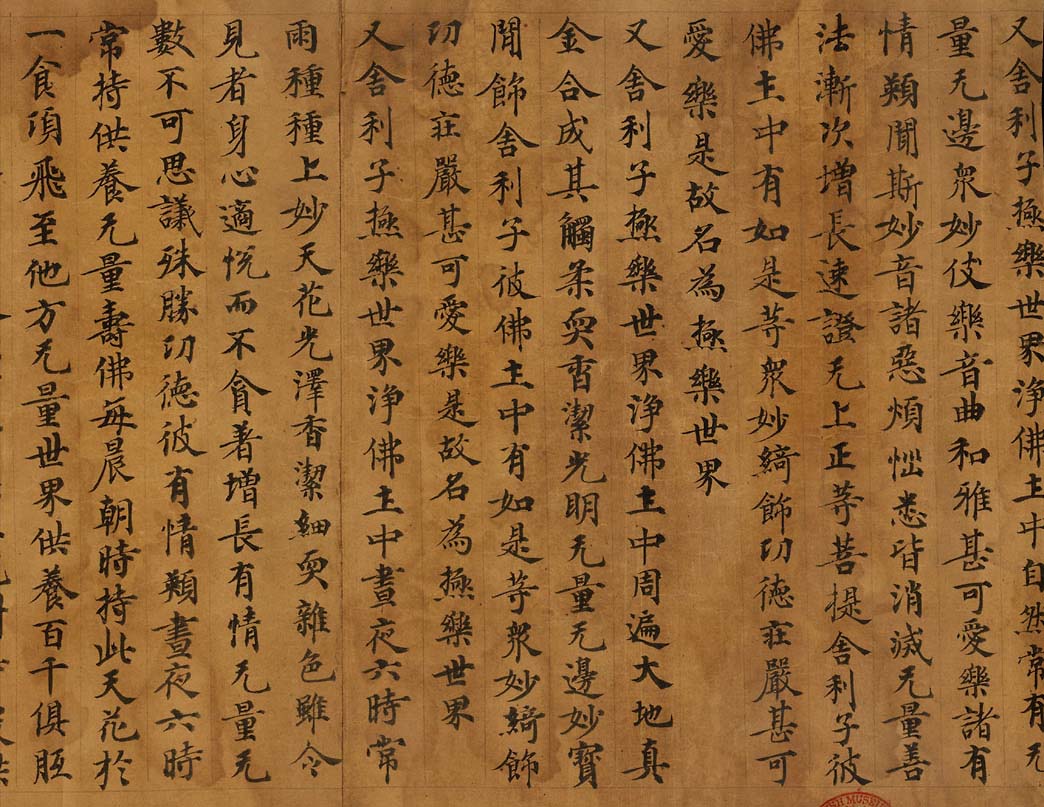 又舍利子極樂世界淨佛土中自然常有无
量无邊眾妙伎樂音曲和雅甚可愛樂諸有
情類聞斯妙音諸惡煩惱悉皆消滅无量善
法漸次增長速證无上正等菩提舍利子彼
佛土中有如是等眾妙綺飾功德莊嚴甚可
愛樂是故名為極樂世界
又舍利子極樂世界淨佛土中周遍大地真
金合成其觸柔耎香潔光明无量无邊妙寶
間飾舍利子彼佛土中有如是等眾妙綺飾
功德莊嚴甚可愛樂是故名為極樂世界
又舍利子極樂世界淨佛土中晝夜六時常
雨種種上妙天花光澤香潔細耎雜色雖令
見者身心適悅而不貪著增長有情无量无
數不可思議殊勝功德彼有情類晝夜六時
常持供養无量壽佛每晨朝時持此天花於
一食頃飛至他方无量世界供養百千俱胝